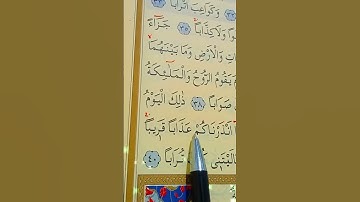 وَكَوَاعِبَ اَتْرَاباً ﴿٣٣﴾
وَلَا كِذَّاباً ﴿٣٥﴾ جَزَٓاءً
وَالْاَرْضِ وَمَا بَيْنَهُمَا
يَقُومُ الرُّوحُ وَالْمَلٰٓئِكَةُ
صَوَاباً ﴿٣٨﴾ ذٰلِكَ الْيَوْمُ
اَنْذَرْنَاكُمْ عَذَاباً قَرٖيباً
تُرَاباً ﴿٤٠﴾